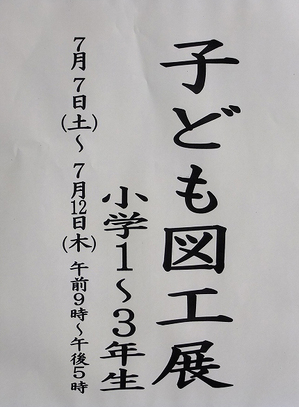 子ども図工展
小学1～3年生
7月7日(土)～7月12日(木) 午前9時～午後5時